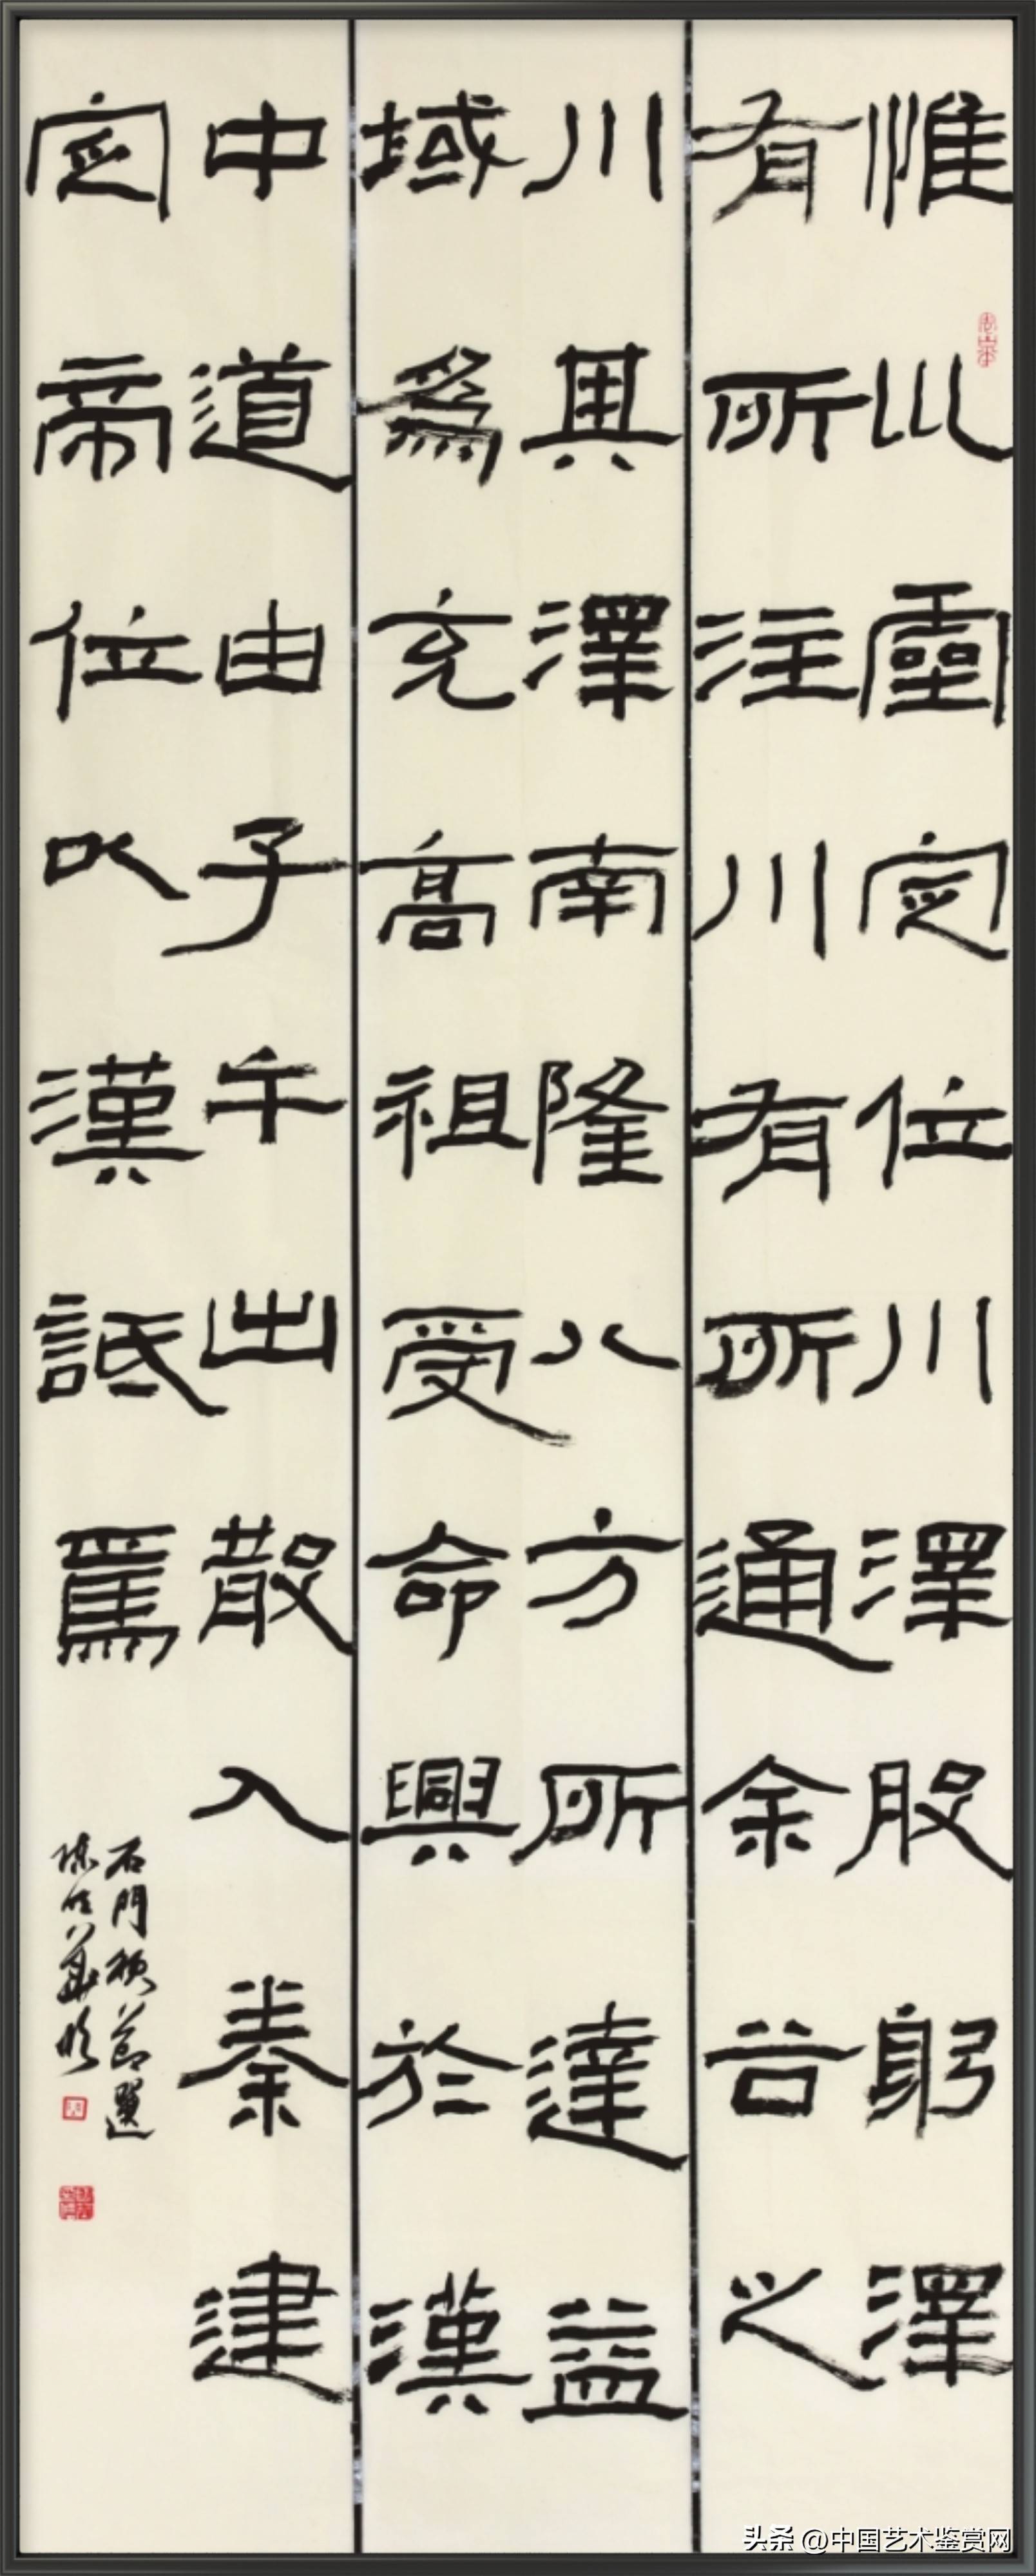 惟巛靈定位川澤股躬澤
有所注川有所通余谷之
川其澤南隆八方所達益
域爲充高祖受命興於漢
中道由子午出散入秦建
定帝位以漢詆焉
石門頌節選
頭条 @中国艺术鉴赏网